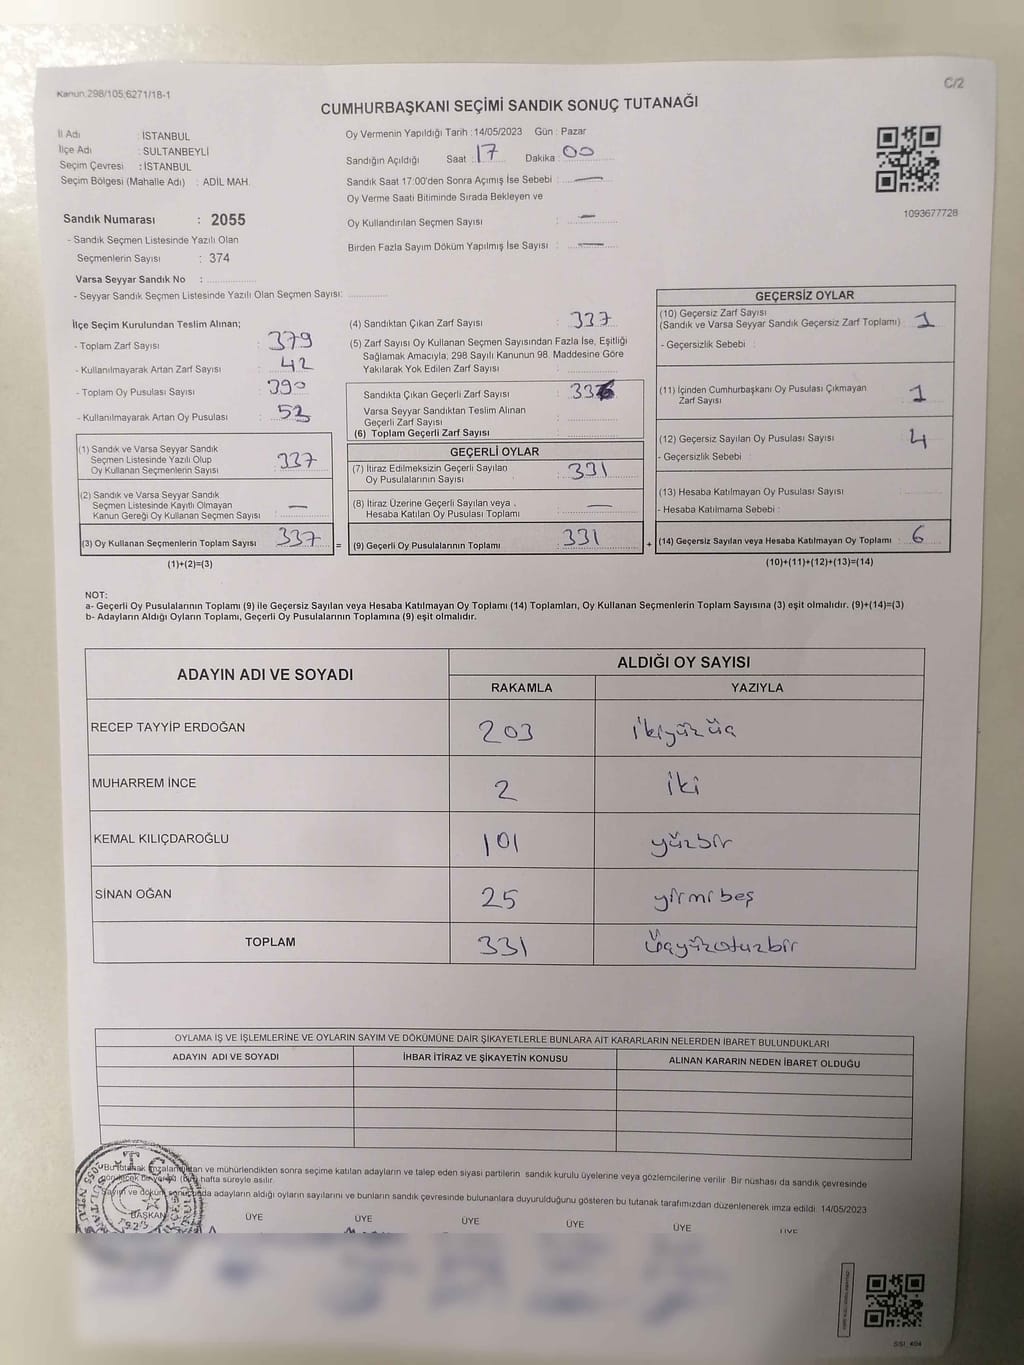 Kanun.298/105;6271/18-1
C/2
CUMHURBAŞKANI SEÇİMİ SANDIK SONUÇ TUTANAĞI
İl Adı : İSTANBUL
İlçe Adı : SULTANBEYLİ
Seçim Çevresi : İSTANBUL
Seçim Bölgesi (Mahalle Adı) : ADİL MAH.
Sandık Numarası : 2055
- Sandık Seçmen Listesinde Yazılı Olan
Seçmenlerin Sayısı : 374
Varsa Seyyar Sandık No :
- Seyyar Sandık Seçmen Listesinde Yazılı Olan Seçmen Sayısı:
Oy Vermenin Yapıldığı Tarih : 14/05/2023 Gün : Pazar
Sandığın Açıldığı Saat : 17 Dakika : 00
Sandık Saat 17:00'den Sonra Açımış İse Sebebi : —
Oy Verme Saati Bitiminde Sırada Bekleyen ve
Oy Kullandırılan Seçmen Sayısı : —
Birden Fazla Sayım Döküm Yapılmış İse Sayısı : —
1093677728
İlçe Seçim Kurulundan Teslim Alınan;
- Toplam Zarf Sayısı : 379
- Kullanılmayarak Artan Zarf Sayısı : 42
- Toplam Oy Pusulası Sayısı : 390
- Kullanılmayarak Artan Oy Pusulası : 53
(1) Sandık ve Varsa Seyyar Sandık
Seçmen Listesinde Yazılı Olup
Oy Kullanan Seçmenlerin Sayısı : 337
(2) Sandık ve Varsa Seyyar Sandık
Seçmen Listesinde Kayıtlı Olmayan
Kanun Gereği Oy Kullanan Seçmen Sayısı : —
(3) Oy Kullanan Seçmenlerin Toplam Sayısı : 337
(1)+(2)=(3)
=
(4) Sandıktan Çıkan Zarf Sayısı : 337
(5) Zarf Sayısı Oy Kullanan Seçmen Sayısından Fazla İse, Eşitliği
Sağlamak Amacıyla, 298 Sayılı Kanunun 98. Maddesine Göre
Yakılarak Yok Edilen Zarf Sayısı :
Sandıkta Çıkan Geçerli Zarf Sayısı : 336
Varsa Seyyar Sandıktan Teslim Alınan
Geçerli Zarf Sayısı :
(6) Toplam Geçerli Zarf Sayısı :
GEÇERLİ OYLAR
(7) İtiraz Edilmeksizin Geçerli Sayılan
Oy Pusulalarının Sayısı : 331
(8) İtiraz Üzerine Geçerli Sayılan veya
Hesaba Katılan Oy Pusulası Toplamı : —
(9) Geçerli Oy Pusulalarının Toplamı : 331
+
GEÇERSİZ OYLAR
(10) Geçersiz Zarf Sayısı
(Sandık ve Varsa Seyyar Sandık Geçersiz Zarf Toplamı) : 1
- Geçersizlik Sebebi :
(11) İçinden Cumhurbaşkanı Oy Pusulası Çıkmayan
Zarf Sayısı : 1
(12) Geçersiz Sayılan Oy Pusulası Sayısı : 4
- Geçersizlik Sebebi :
(13) Hesaba Katılmayan Oy Pusulası Sayısı :
- Hesaba Katılmama Sebebi :
(14) Geçersiz Sayılan veya Hesaba Katılmayan Oy Toplamı : 6
(10)+(11)+(12)+(13)=(14)
NOT:
a- Geçerli Oy Pusulalarının Toplamı (9) ile Geçersiz Sayılan veya Hesaba Katılmayan Oy Toplamı (14) Toplamları, Oy Kullanan Seçmenlerin Toplam Sayısına (3) eşit olmalıdır. (9)+(14)=(3)
b- Adayların Aldığı Oyların Toplamı, Geçerli Oy Pusulalarının Toplamına (9) eşit olmalıdır.
ADAYIN ADI VE SOYADI ALDIĞI OY SAYISI
RAKAMLA YAZIYLA
RECEP TAYYİP ERDOĞAN 203 ikiyüzüç
MUHARREM İNCE 2 iki
KEMAL KILIÇDAROĞLU 101 yüzbir
SİNAN OĞAN 25 yirmibeş
TOPLAM 331 Üçyüzotuzbir
OYLAMA İŞ VE İŞLEMLERİNE VE OYLARIN SAYIM VE DÖKÜMÜNE DAİR ŞİKAYETLERLE BUNLARA AİT KARARLARIN NELERDEN İBARET BULUNDUKLARI
ADAYIN ADI VE SOYADI İHBAR İTİRAZ VE ŞİKAYETİN KONUSU ALINAN KARARIN NEDEN İBARET OLDUĞU
Bu tutanak imzalandıktan ve mühürlendikten sonra seçime katılan adayların ve talep eden siyasi partilerin sandık kurulu üyelerine veya gözlemcilerine verilir. Bir nüshası da sandık çevresinde
hafta süreyle asılır.
Sayım ve döküm sonucunda adayların aldığı oyların sayılarını ve bunların sandık çevresinde bulunanlara duyurulduğunu gösteren bu tutanak tarafımızdan düzenlenerek imza edildi. 14/05/2023
BAŞKAN ÜYE ÜYE ÜYE ÜYE ÜYE ÜYE
T.C.